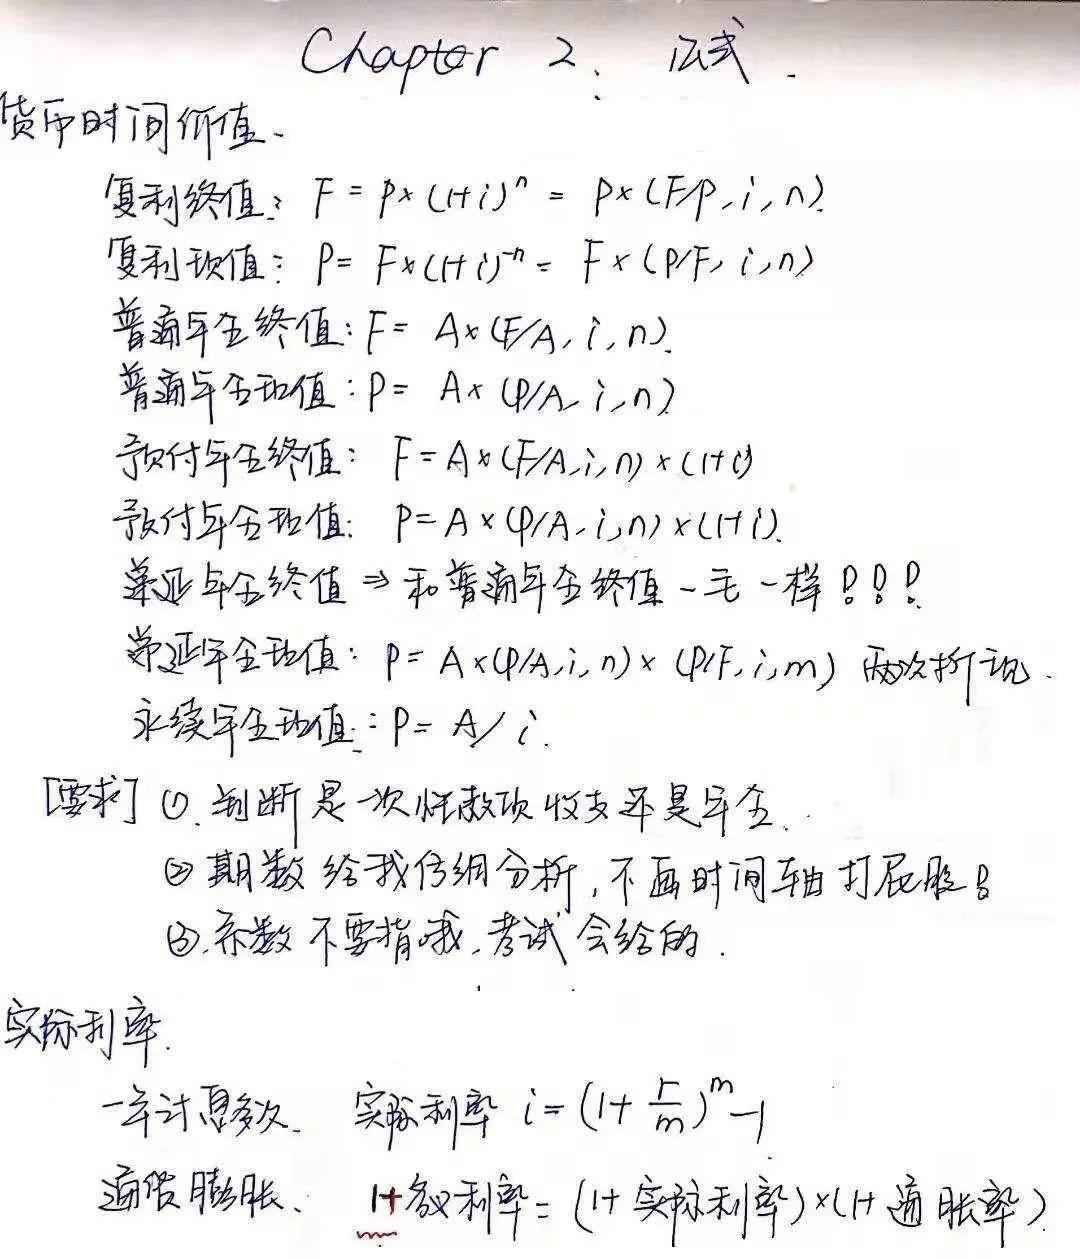 Chapter 2. 公式.
货币时间价值.
复利终值: F = P×(1+i)ⁿ = P×(F/P, i, n).
复利现值: P = F×(1+i)⁻ⁿ = F×(P/F, i, n)
普通年金终值: F = A×(F/A, i, n).
普通年金现值: P = A×(P/A, i, n)
预付年金终值: F = A×(F/A, i, n)×(1+i)
预付年金现值: P = A×(P/A, i, n)×(1+i).
递延年金终值 ⇒ 和普通年金终值一毛一样!!!
递延年金现值: P = A×(P/A, i, n)×(P/F, i, m) 两次折现.
永续年金现值: P = A/i.
[要求] ①. 判断是一次性款项收支还是年金.
② 期数给我仔细分析, 不画时间轴打屁股!
③. 系数不要背哦, 考试会给的.
实际利率.
一年计息多次. 实际利率 i = (1+r/m)ᵐ-1
通货膨胀. 1+名义利率 = (1+实际利率)×(1+通胀率)